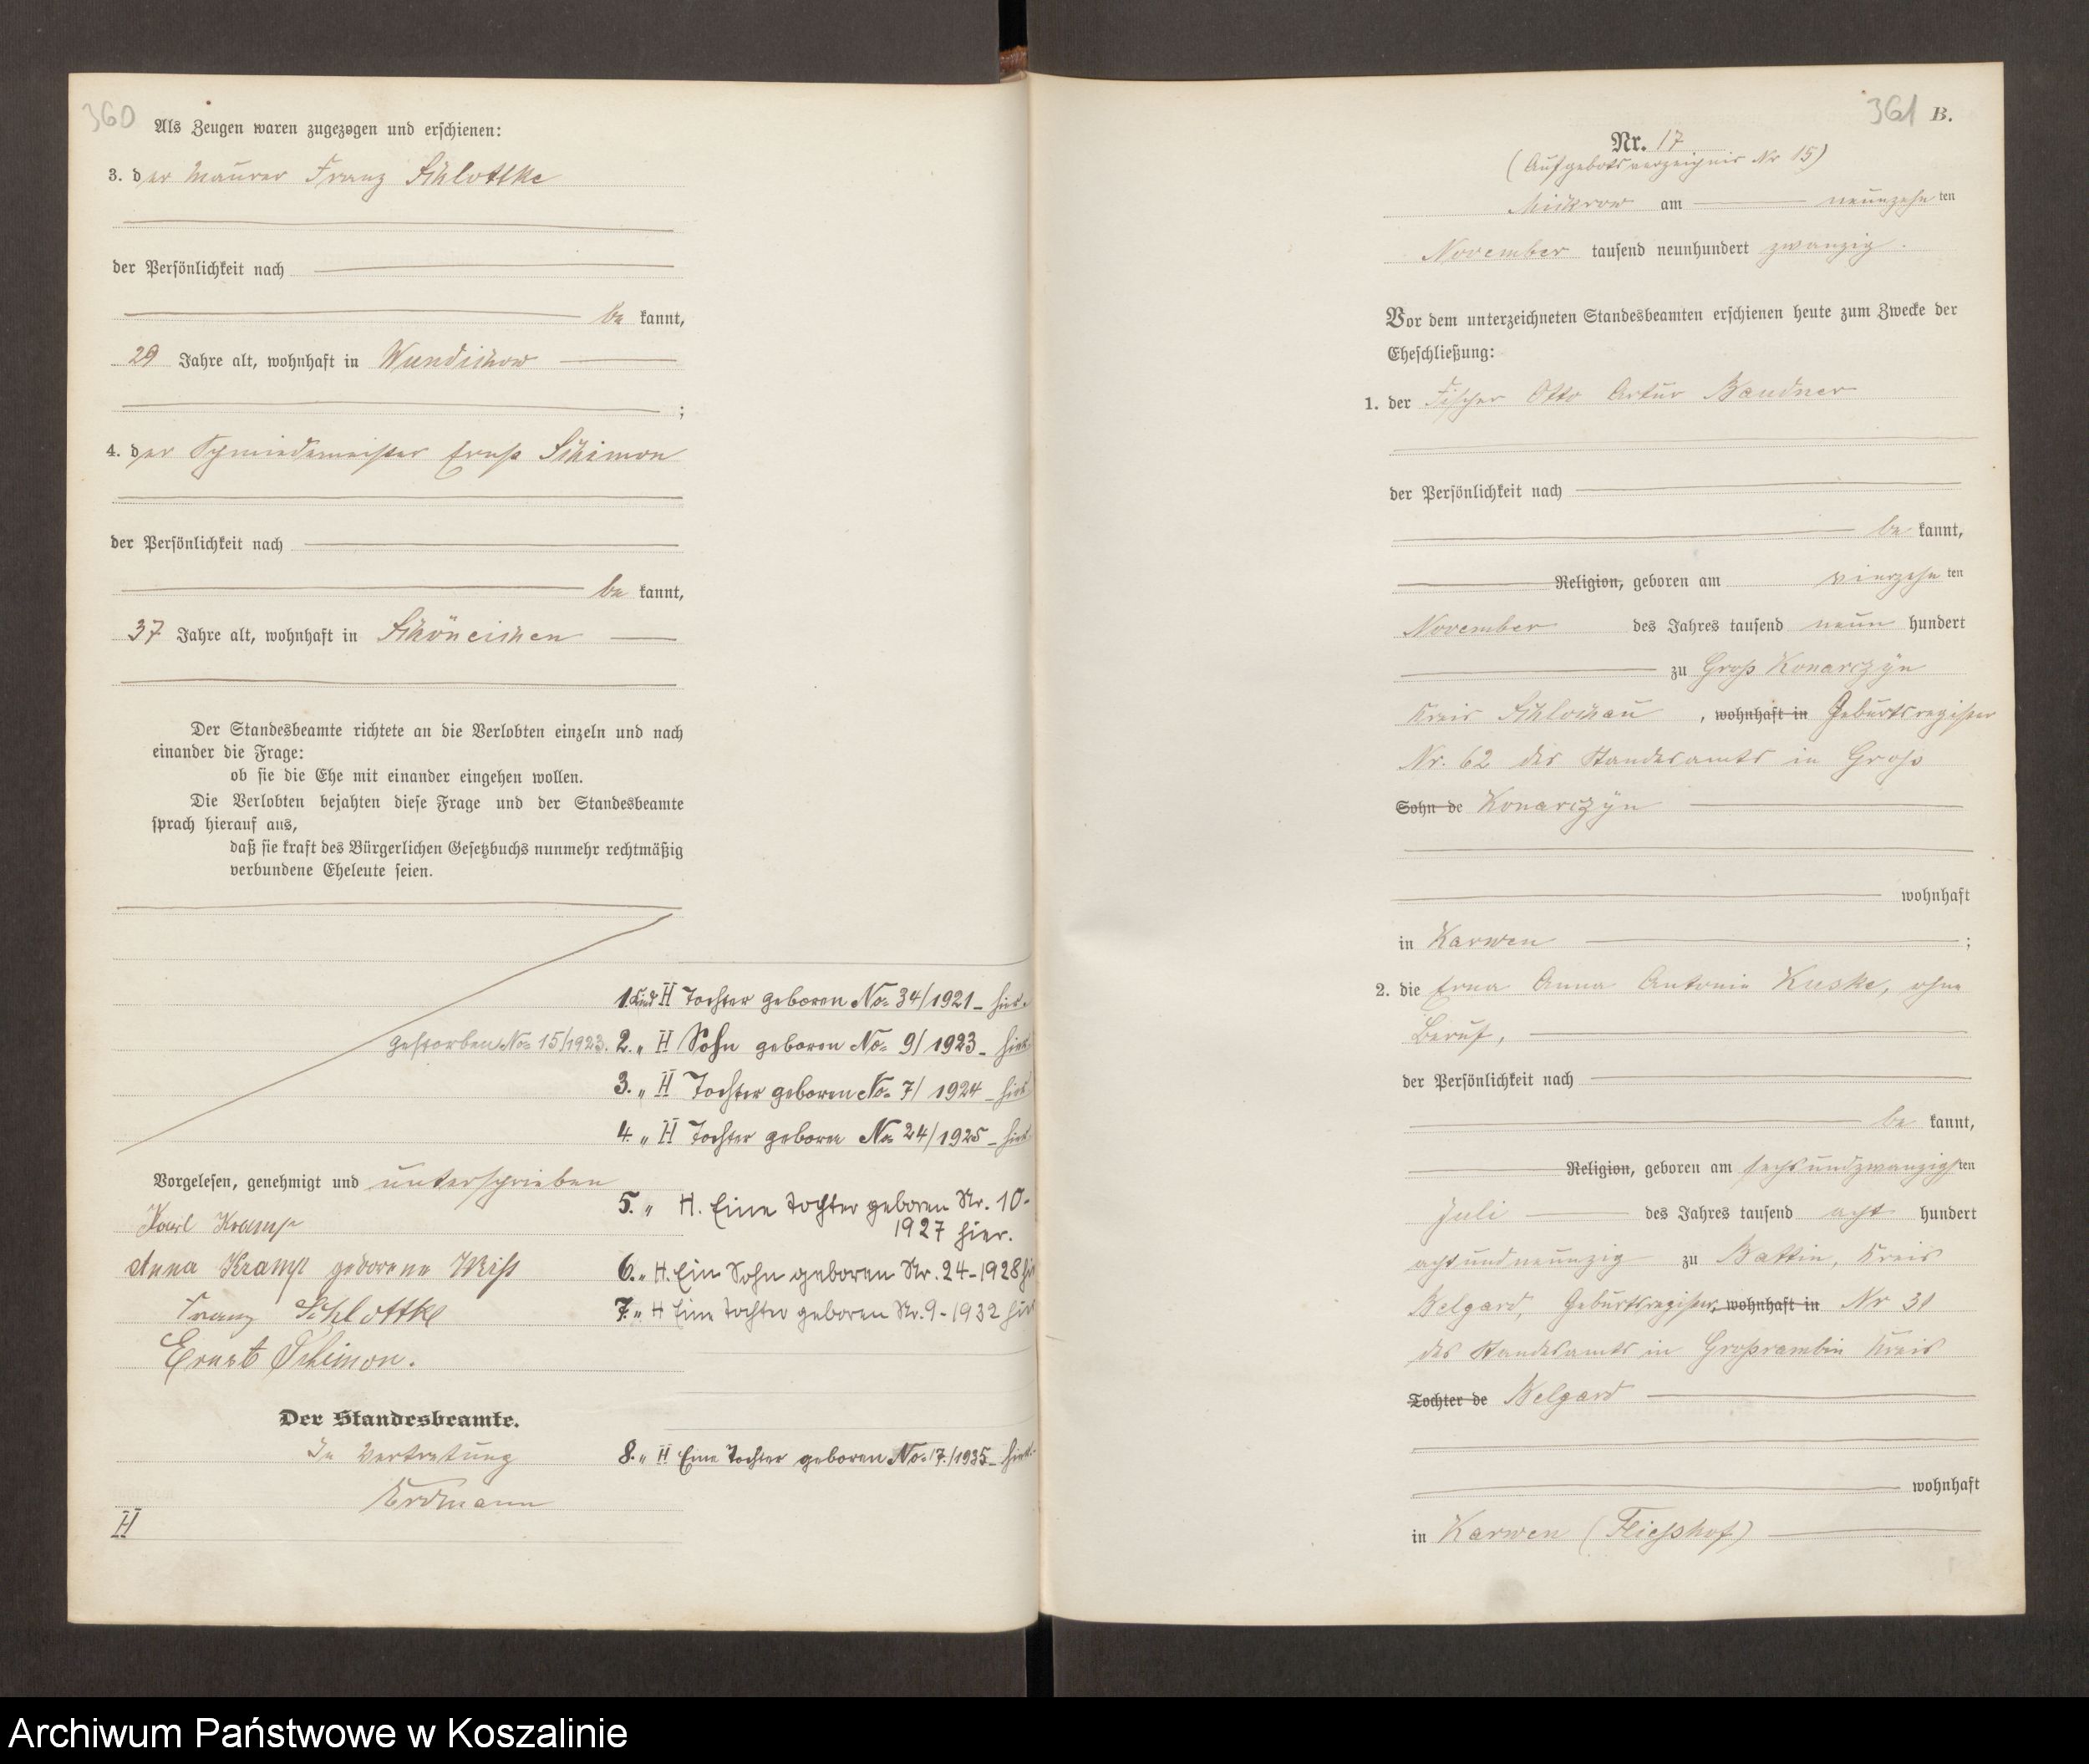 360
Als Zeugen waren zugezogen und erschienen:
3. der Maurer Franz Schlottke
der Persönlichkeit nach
be kannt,
29 Jahre alt, wohnhaft in Wundichow
;
4. der Schmiedemeister Ernst Schimon
der Persönlichkeit nach
be kannt,
37 Jahre alt, wohnhaft in Schöneichen
Der Standesbeamte richtete an die Verlobten einzeln und nach
einander die Frage:
ob sie die Ehe mit einander eingehen wollen.
Die Verlobten bejahten diese Frage und der Standesbeamte
sprach hierauf aus,
daß sie kraft des Bürgerlichen Gesetzbuchs nunmehr rechtmäßig
verbundene Eheleute seien.
1. Kind H Tochter geboren No. 34/1921 - hier.
gestorben No. 15/1923. 2. " H Sohn geboren No. 9/1923 - hier
3. " H Tochter geboren No. 7/1924 - hier
4. " H Tochter geboren No. 24/1925 - hier
Vorgelesen, genehmigt und unterschrieben
5. " H. Eine Tochter geboren Nr. 10-
1927 hier.
Karl Kramp
Anna Kramp geborene Wiß
6. " H. Ein Sohn geboren Nr. 24-1928 hier
Franz Schlottke
7. " H Eine Tochter geboren Nr. 9-1932 hier
Ernst Schimon.
Der Standesbeamte.
In Vertretung
8. " H Eine Tochter geboren No. 17./1935 - hier.
Erdmann
H
361 B.
Nr. 17
(Aufgebotsverzeichnis Nr 15)
Mickrow am neunzehn ten
November tausend neunhundert zwanzig.
Vor dem unterzeichneten Standesbeamten erschienen heute zum Zwecke der
Eheschließung:
1. der Fischer Otto Artur Bandner
der Persönlichkeit nach
be kannt,
Religion, geboren am vierzehn ten
November des Jahres tausend neun hundert
zu Groß Konarczyn
Kreis Schlochau, wohnhaft in Geburtsregister
Nr. 62 des Standesamts in Groß
Sohn de Konarczyn
wohnhaft
in Karwen ;
2. die Erna Anna Antonie Kuske, ohne
Beruf,
der Persönlichkeit nach
be kannt,
Religion, geboren am sechsundzwanzigsten
Juli des Jahres tausend acht hundert
achtundneunzig zu Battin, Kreis
Belgard, Geburtsregister, wohnhaft in Nr 31
des Standesamts in Großrambin Kreis
Tochter de Belgard
wohnhaft
in Karwen (Fließhof)
Archiwum Państwowe w Koszalinie